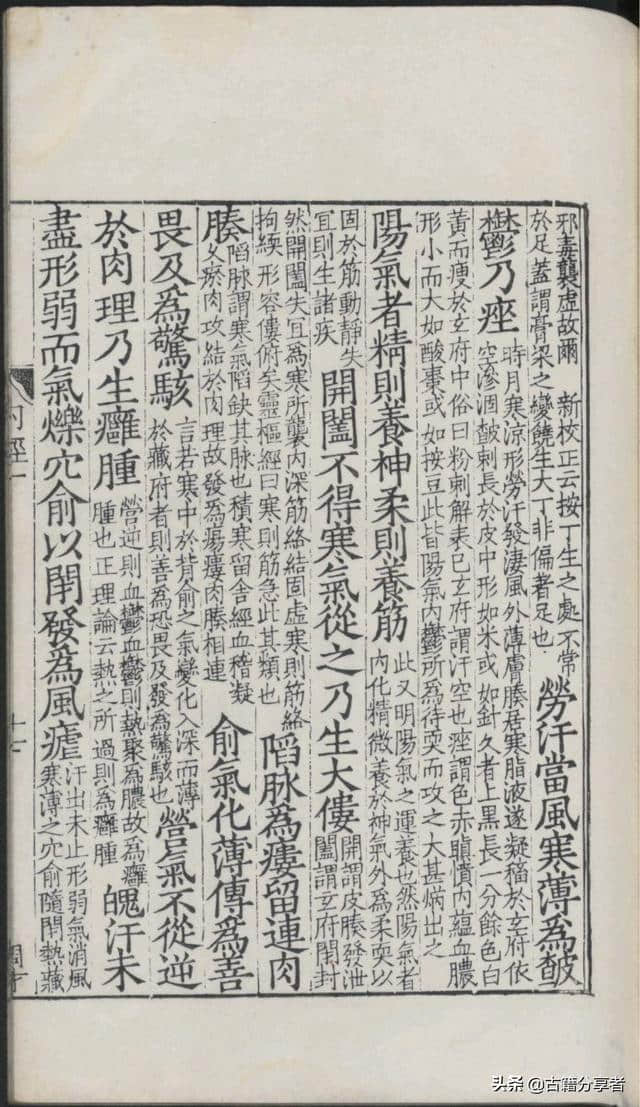 邪毒襲虛故爾　新校正云按丁生之處不常
於足蓋謂膏梁之變饒生大丁非偏著足也
勞汗當風寒薄為皶
鬱乃痤
時月寒涼形勞汗發淒風外薄膚腠居寒脂液遂凝稸於玄府依
空滲涸皶刺長於皮中形如米或如針久者上黑長一分餘色白
黃而瘦於玄府中俗曰粉刺解表已玄府謂汗空也痤謂色赤䐜憤內蘊血膿
形小而大如酸棗或如按豆此皆陽氣內鬱所為待耎而攻之大甚焫出之
陽氣者精則養神柔則養筋
此又明陽氣之運養也然陽氣者
內化精微養於神氣外為柔耎以
固於筋動靜失
宜則生諸疾
開闔不得寒氣從之乃生大僂
開謂皮腠發泄
闔謂玄府閉封
然開闔失宜為寒所襲內深筋絡結固虛寒則筋絡
拘緛形容僂俯矣靈樞經曰寒則筋急此其類也
陷脉為瘻留連肉
腠
陷脉謂寒氣陷缺其脉也積寒留舍經血稽凝
久瘀肉攻結於肉理故發為瘍瘻肉腠相連
俞氣化薄傳為善
畏及為驚駭
言若寒中於背俞之氣變化入深而薄
於藏府者則善為恐畏及發為驚駭也
營氣不從逆
於肉理乃生癰腫
營逆則血鬱血鬱則熱聚為膿故為癰
腫也正理論云熱之所過則為癰腫
魄汗未
盡形弱而氣爍穴俞以閉發為風瘧
汗出未止形弱氣消風
寒薄之穴俞隨閉熱藏
內經一
十七
头条@古籍分享者